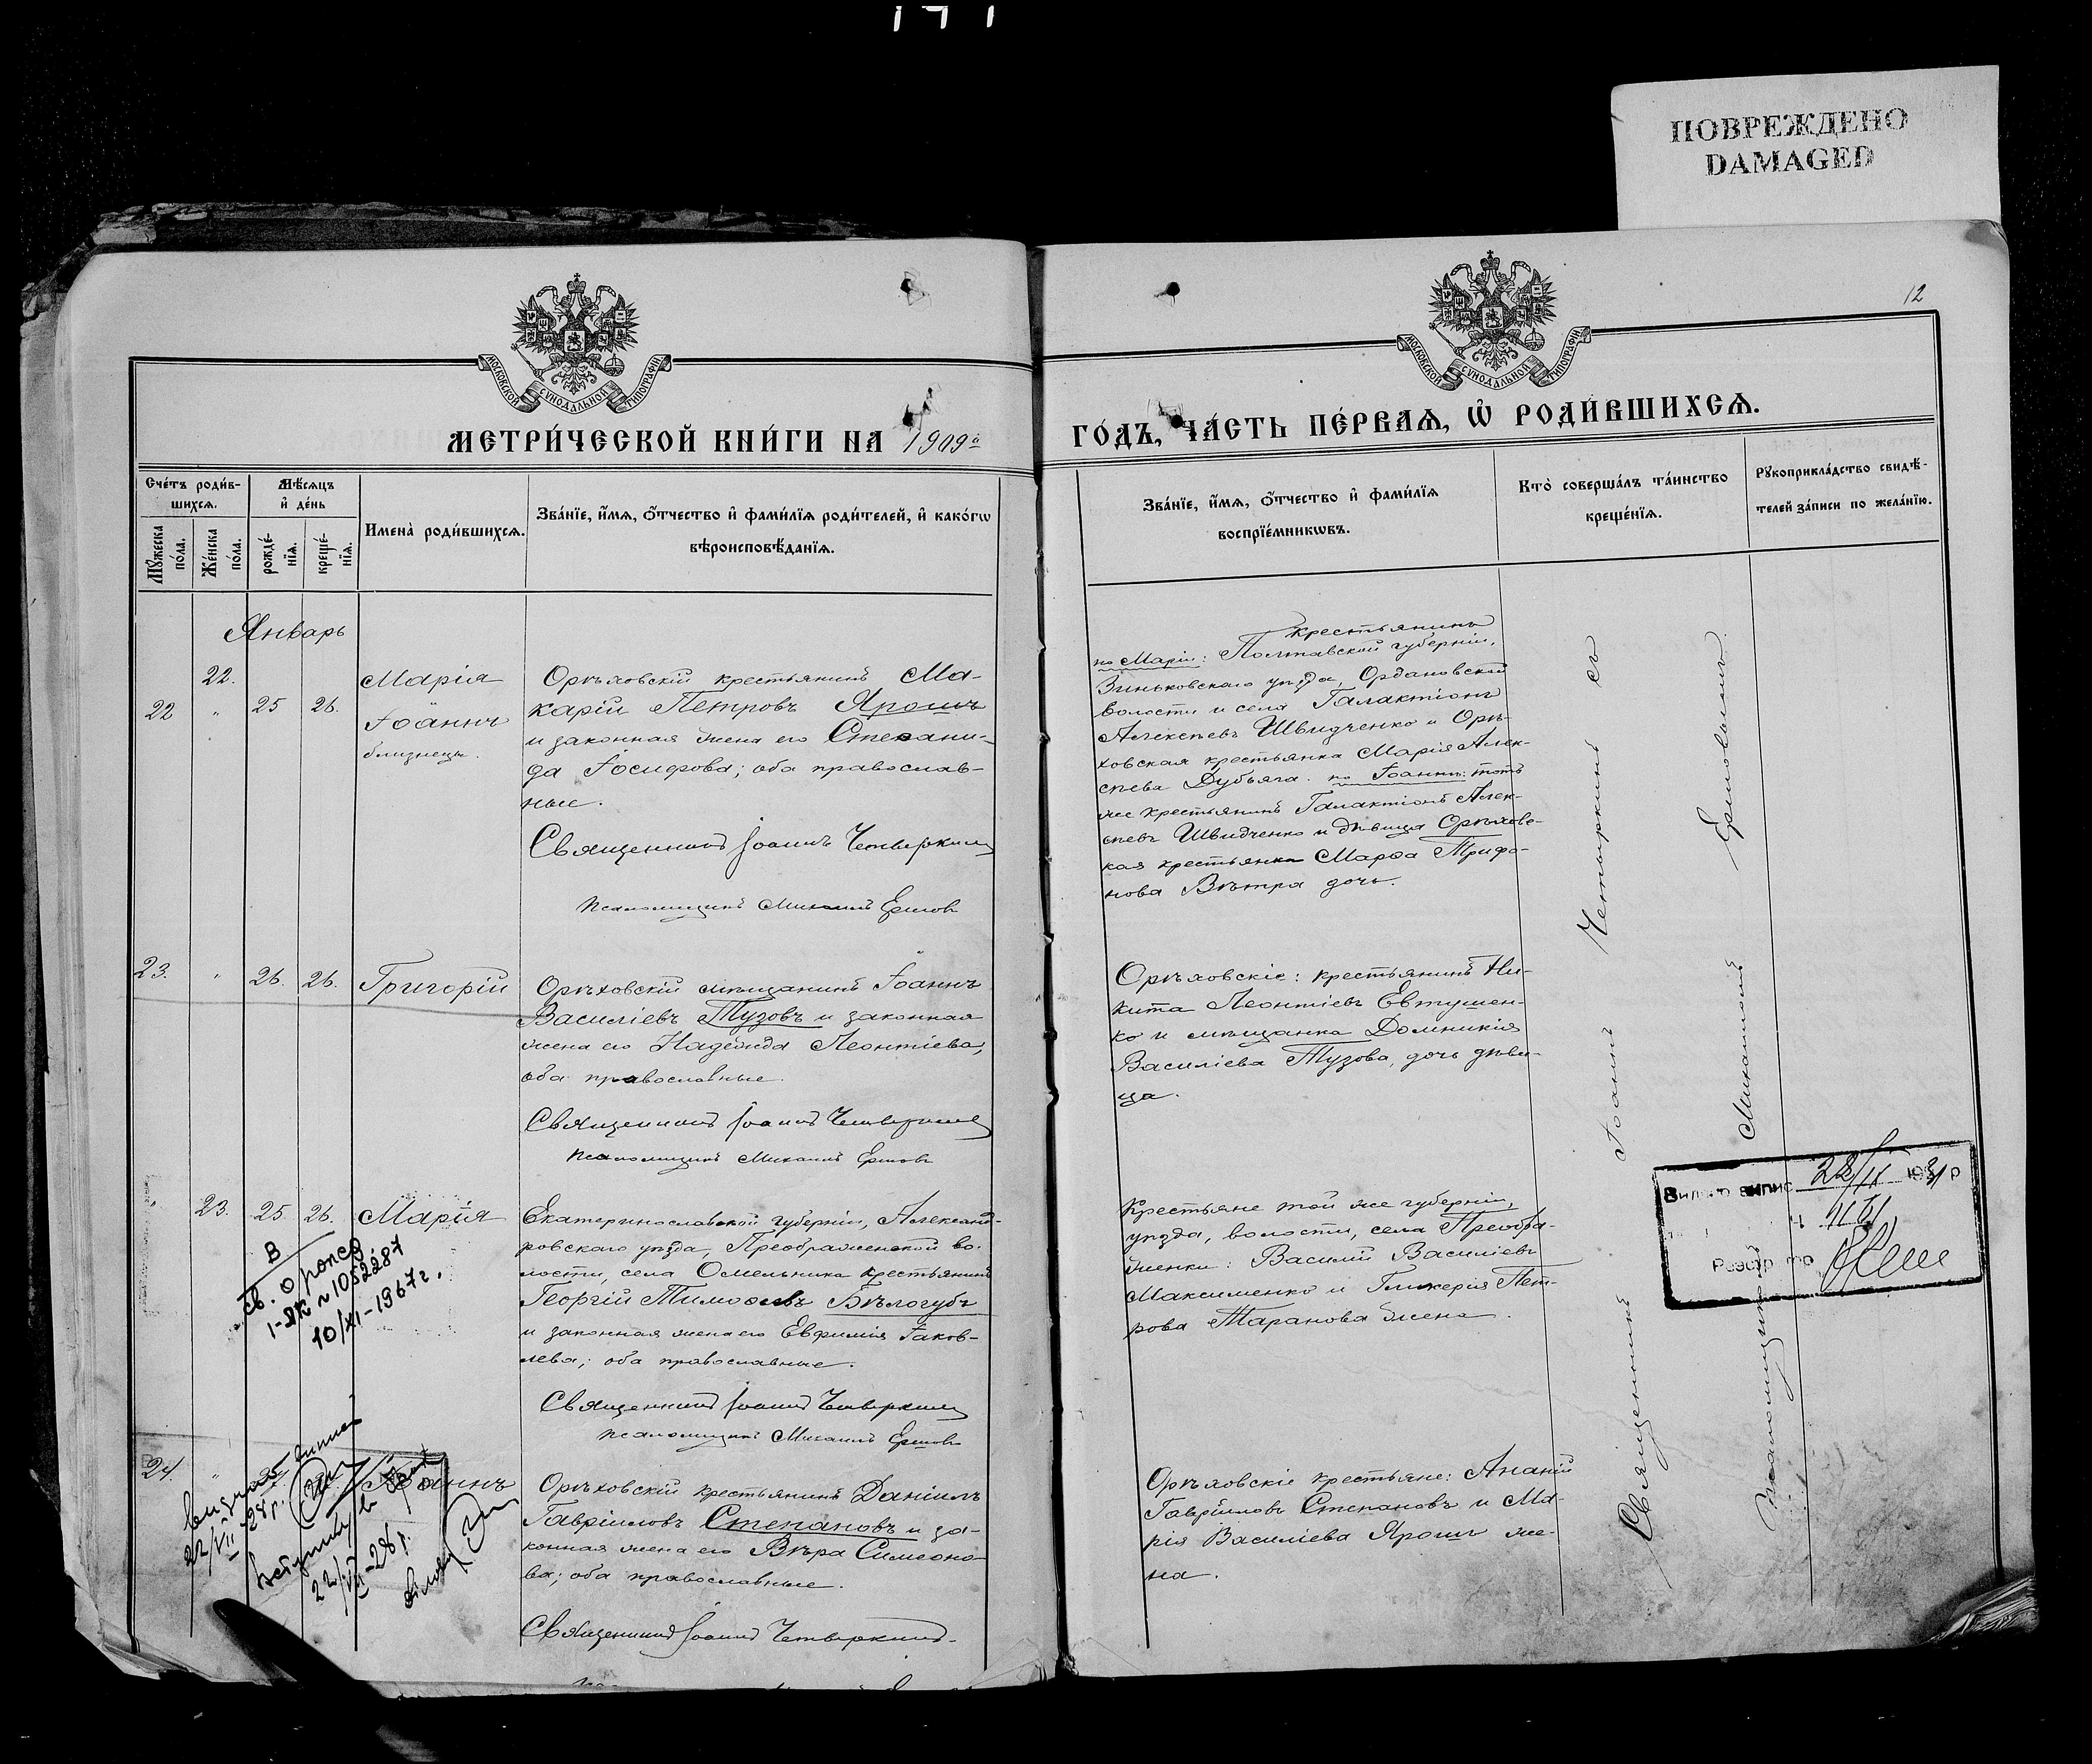 ПОВРЕЖДЕНО
DAMAGED
12
МОСКОВСКОЙ СѴНОДАЛЬНОЙ ТИПОГРАФІИ
МОСКОВСКОЙ СѴНОДАЛЬНОЙ ТИПОГРАФІИ
МЕТРИ́ЧЕСКОЙ КНИ́ГИ НА 1909й
ГО́ДЪ, ЧА́СТЬ ПЕ́РВАѦ, Ѽ РОДИ́ВШИХСѦ.
Сче́тъ роди́в-
шихсѧ.
Мꙋ́жеска по́ла.
Же́нска по́ла.
Мѣ́сѧцъ
и҆ де́нь
рожде́-
нїѧ.
креще́-
нїѧ.
Имена̀ роди́вшихсѧ.
Зва́нїе, и҆́мѧ, ѻ҆́тчество и҆ фами́лїѧ роди́телей, и҆ како́гѡ
вѣроисповѣ́данїѧ.
Зва́нїе, и҆́мѧ, ѻ҆́тчество и҆ фами́лїѧ
воспрїе́мникѡвъ.
Кто̀ соверша́лъ та́инство
креще́нїѧ.
Рꙋкоприкла́дство свидѣ́-
телей за́писи по жела́нїю.
Январь
22.
22 " 25 26.
Марія
Іоаннъ
близнецы.
Орѣховскій крестьянинъ Ма-
карій Петровъ Ярошъ
и законная жена его Степани-
да Іосифова; оба православ-
ные.
Священникъ Іоаннъ Четыркинъ
Псаломщикъ Михаилъ Ершовъ
крестьянинъ
по Маріи: Полтавской губерніи,
Зиньковскаго уѣзда, Ордановской
волости и села Галактіонъ
Алексѣевъ Швидченко и Орѣ-
ховская крестьянка Марія Алек-
сѣева Дубьяга. по Іоаннѣ: тотъ
же крестьянинъ Галактіонъ Алек-
сѣевъ Швидченко и дѣвица Орѣховс-
кая крестьянка Марѳа Трифо-
нова Вѣтра дочь.
23. " 26. 26. Григорій
Орѣховскій мѣщанинъ Іоаннъ
Василіевъ Тузовъ и законная
жена его Надежда Леонтіева,
оба православные.
Священникъ Іоаннъ Четыркинъ
Псаломщикъ Михаилъ Ершовъ
Орѣховскіе: крестьянинъ Ни-
кита Леонтіевъ Евтушен-
ко и мѣщанка Домникія
Василіева Тузова, дочь дѣви-
ца.
" 23. 25 26. Марія
Екатеринославской губерніи, Александ-
ровскаго уѣзда, Преображенской во-
лости, села Омельника крестьянинъ
Георгій Тимоѳеевъ Бѣлогубъ
и законная жена его Евфимія Іаков-
лева; оба православные.
Священникъ Іоаннъ Четыркинъ
Псаломщикъ Михаилъ Ершовъ
10/XI-1967г.
Крестьяне той же губерніи,
уѣзда, волости, села Преобра-
женки: Василій Василіевъ
Максименко и Гликерія Пет-
рова Таранова жена.
24. " Іоаннъ
22/VII-28 р.
Орѣховскій крестьянинъ Даніилъ
Гавріиловъ Степановъ и за-
конная жена его Вѣра Симеоно-
ва; оба православные.
Священникъ Іоаннъ Четыркинъ.
Орѣховскіе крестьяне: Ананій
Гавріиловъ Степановъ и Ма-
рія Василіева Ярошъ же-
на.
Священникъ Іоаннъ Четыркинъ съ
Псаломщикомъ Михаиломъ Ершовымъ.